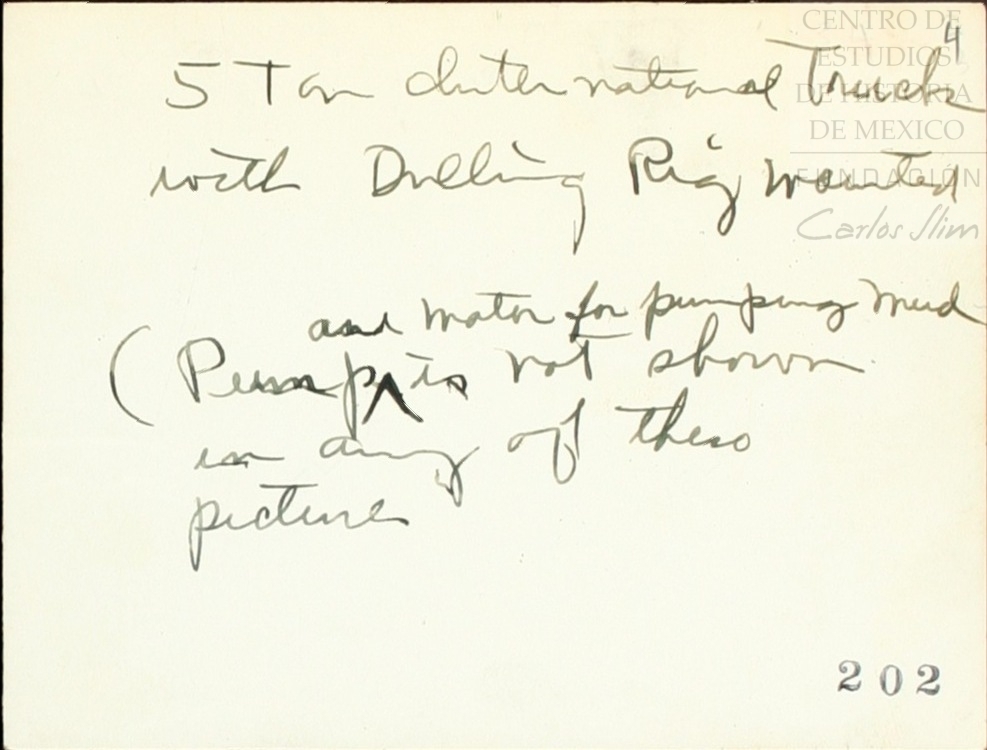 4
5 Ton International Truck
with Drilling Rig mounted
and motor for pumping mud
(Pump ^ is not shown
in any of these
pictures
202
CENTRO DE
ESTUDIOS
DE HISTORIA
DE MEXICO
FUNDACIÓN
Carlos Slim